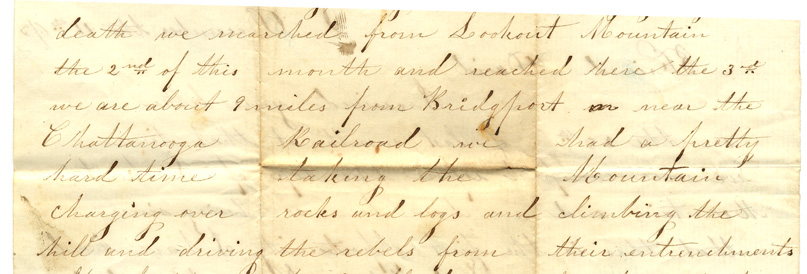 death we marched from Lookout Mountain
the 2nd of this month and reached here the 3rd
we are about 9 miles from Bridgport near the
Chattanooga Railroad we had a pretty
hard time taking the Mountain
charging over rocks and logs and climbing the
hill and driving the rebels from their entrenchments